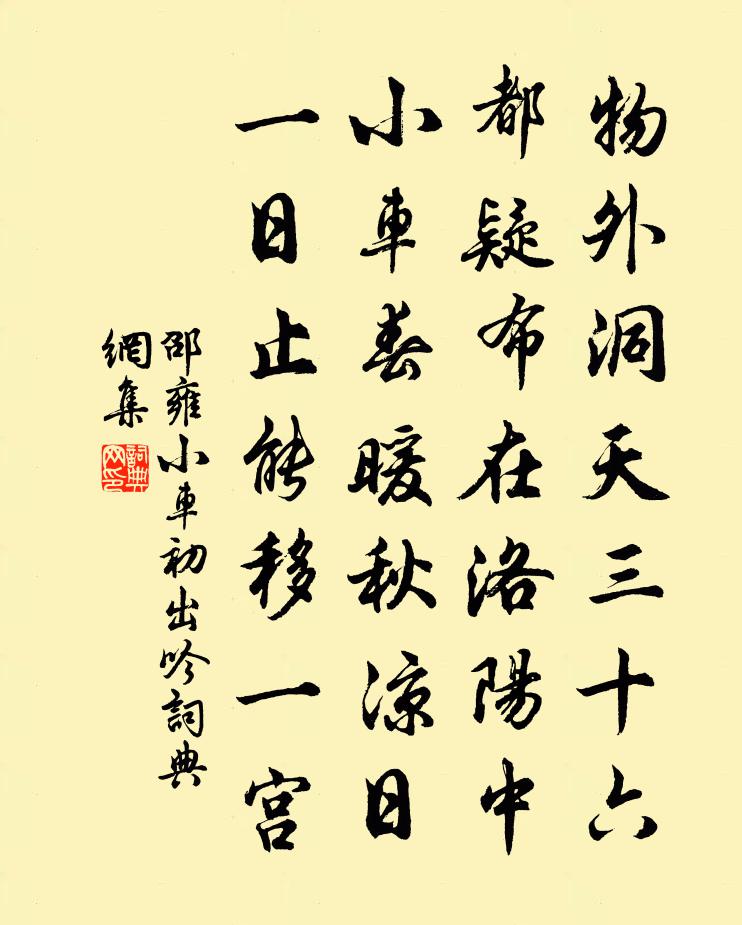 物外洞天三十六
都疑布在洛陽中
小車春暖秋涼日
一日止能移一宮
邵雍小車初出吟詞典
網集
詞典網印